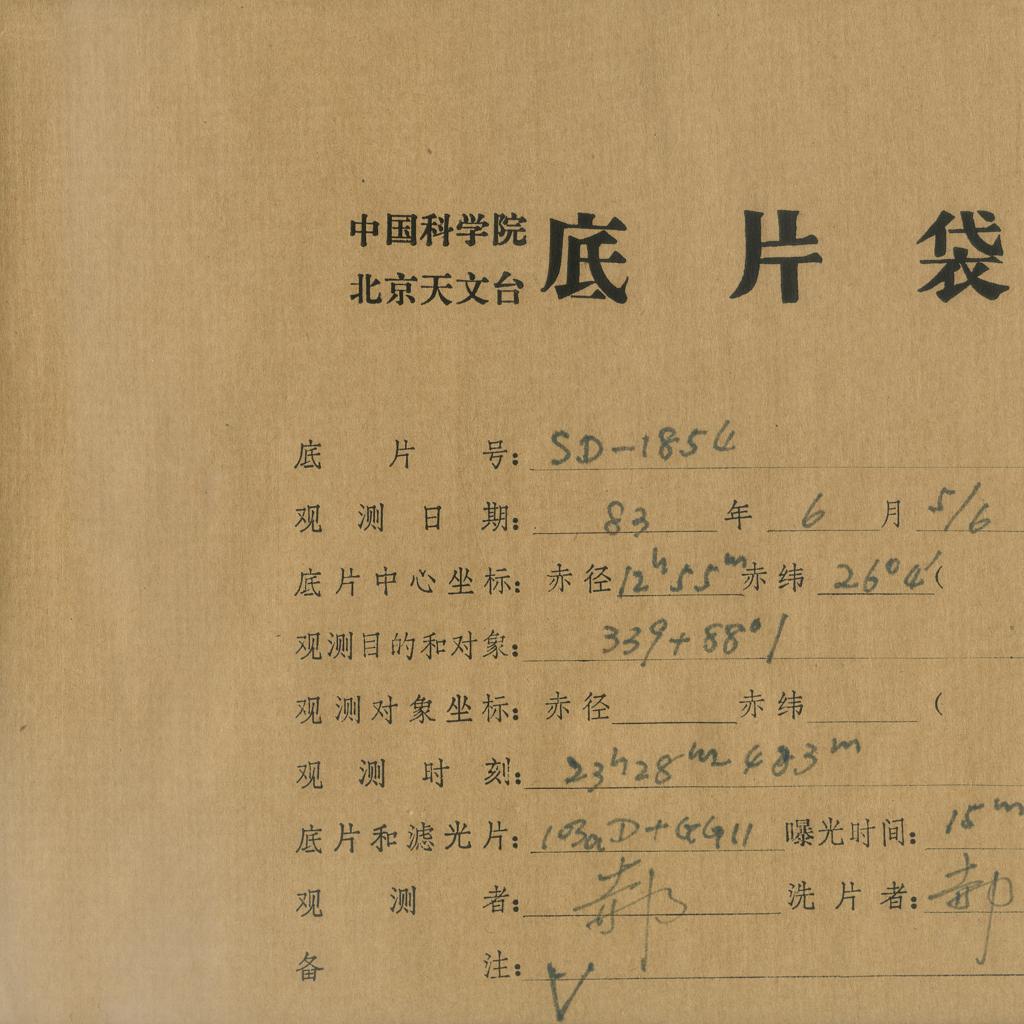 中国科学院
北京天文台
底片袋
底片号: SD-1854
观测日期: 83 年 6 月 5/6
底片中心坐标: 赤径 12ʰ55ᵐ 赤纬 26°04′ (
观测目的和对象: 339+88°1
观测对象坐标: 赤径 赤纬 (
观测时刻: 23ʰ28ᵐ 483ᵐ
底片和滤光片: 103aD+GG11 曝光时间: 15ᵐ
观测者: 郝 洗片者: 郝
备注: V